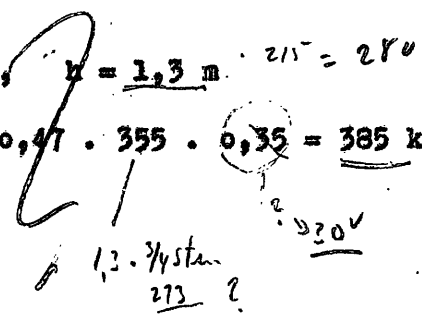 , h = 1,3 m . 215 = 280
0,47 . 355 . 0,35 = 385 k
?
1,3 . 3/4
273 ?